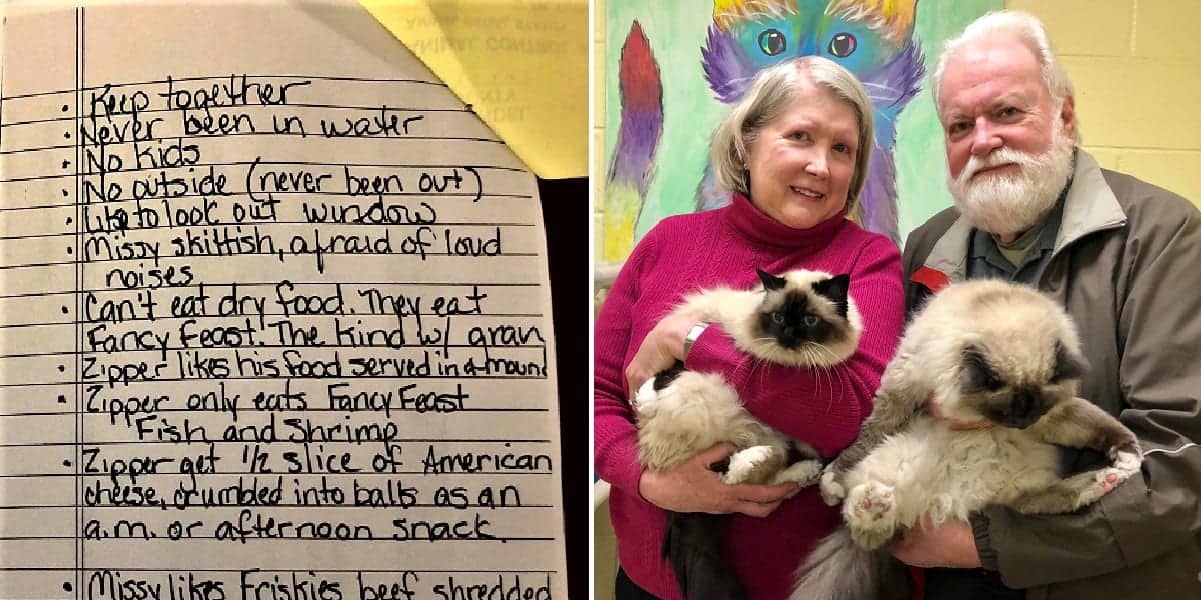 ANIMAL CONTROL
• Keep together
• Never been in water
• No kids
• No outside (never been out)
• Like to look out window
• Missy skittish, afraid of loud
noises
• Can't eat dry food. They eat
Fancy Feast. The kind w/ grav
• Zipper likes his food served in a mound
• Zipper only eats Fancy Feast
Fish and Shrimp
• Zipper get 1/2 slice of American
cheese, crumbled into balls as an
a.m. or afternoon snack.
• Missy likes Friskies beef shredded